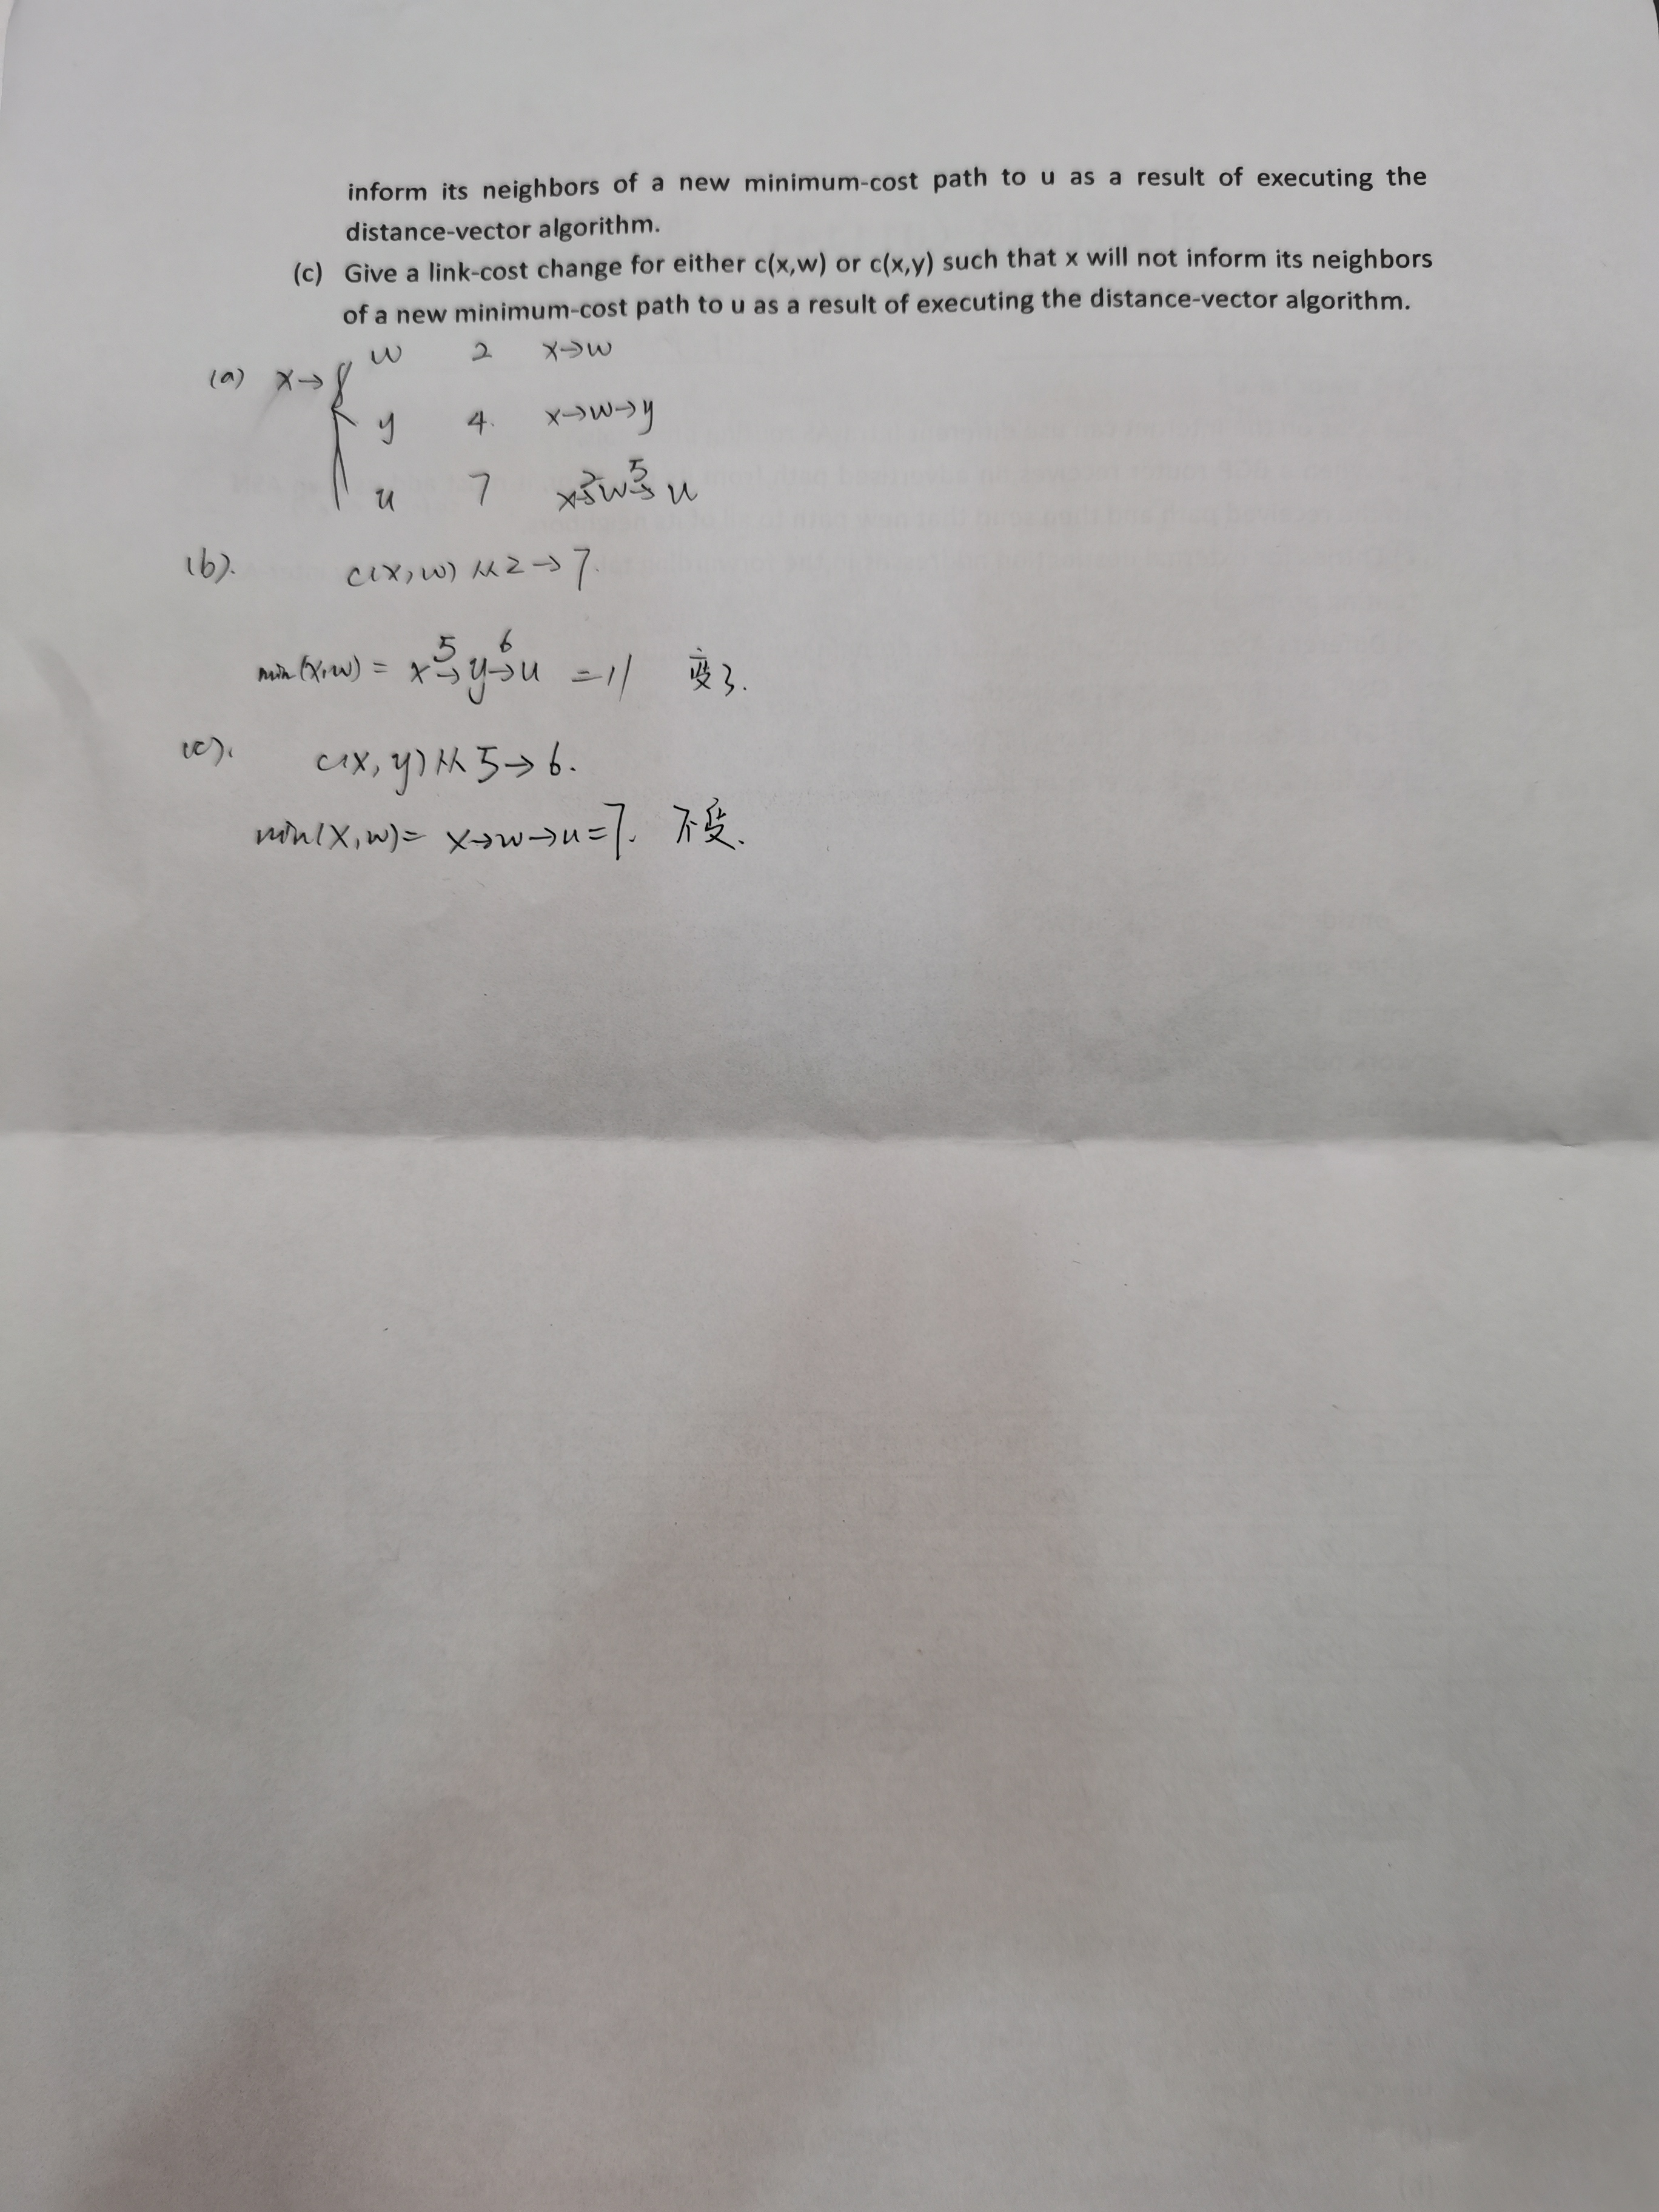 inform its neighbors of a new minimum-cost path to u as a result of executing the
distance-vector algorithm.
(c) Give a link-cost change for either c(x,w) or c(x,y) such that x will not inform its neighbors
of a new minimum-cost path to u as a result of executing the distance-vector algorithm.
(a) x→{ w 2 x→w
y 4. x→w→y
u 7 x→2 w→5 u
(b). c(x,w) 从2→7.
min(x,w) = x→5 y→6 u =11 变了.
(c). c(x,y)从5→6.
min(x,w)= x→w→u=7. 不变.